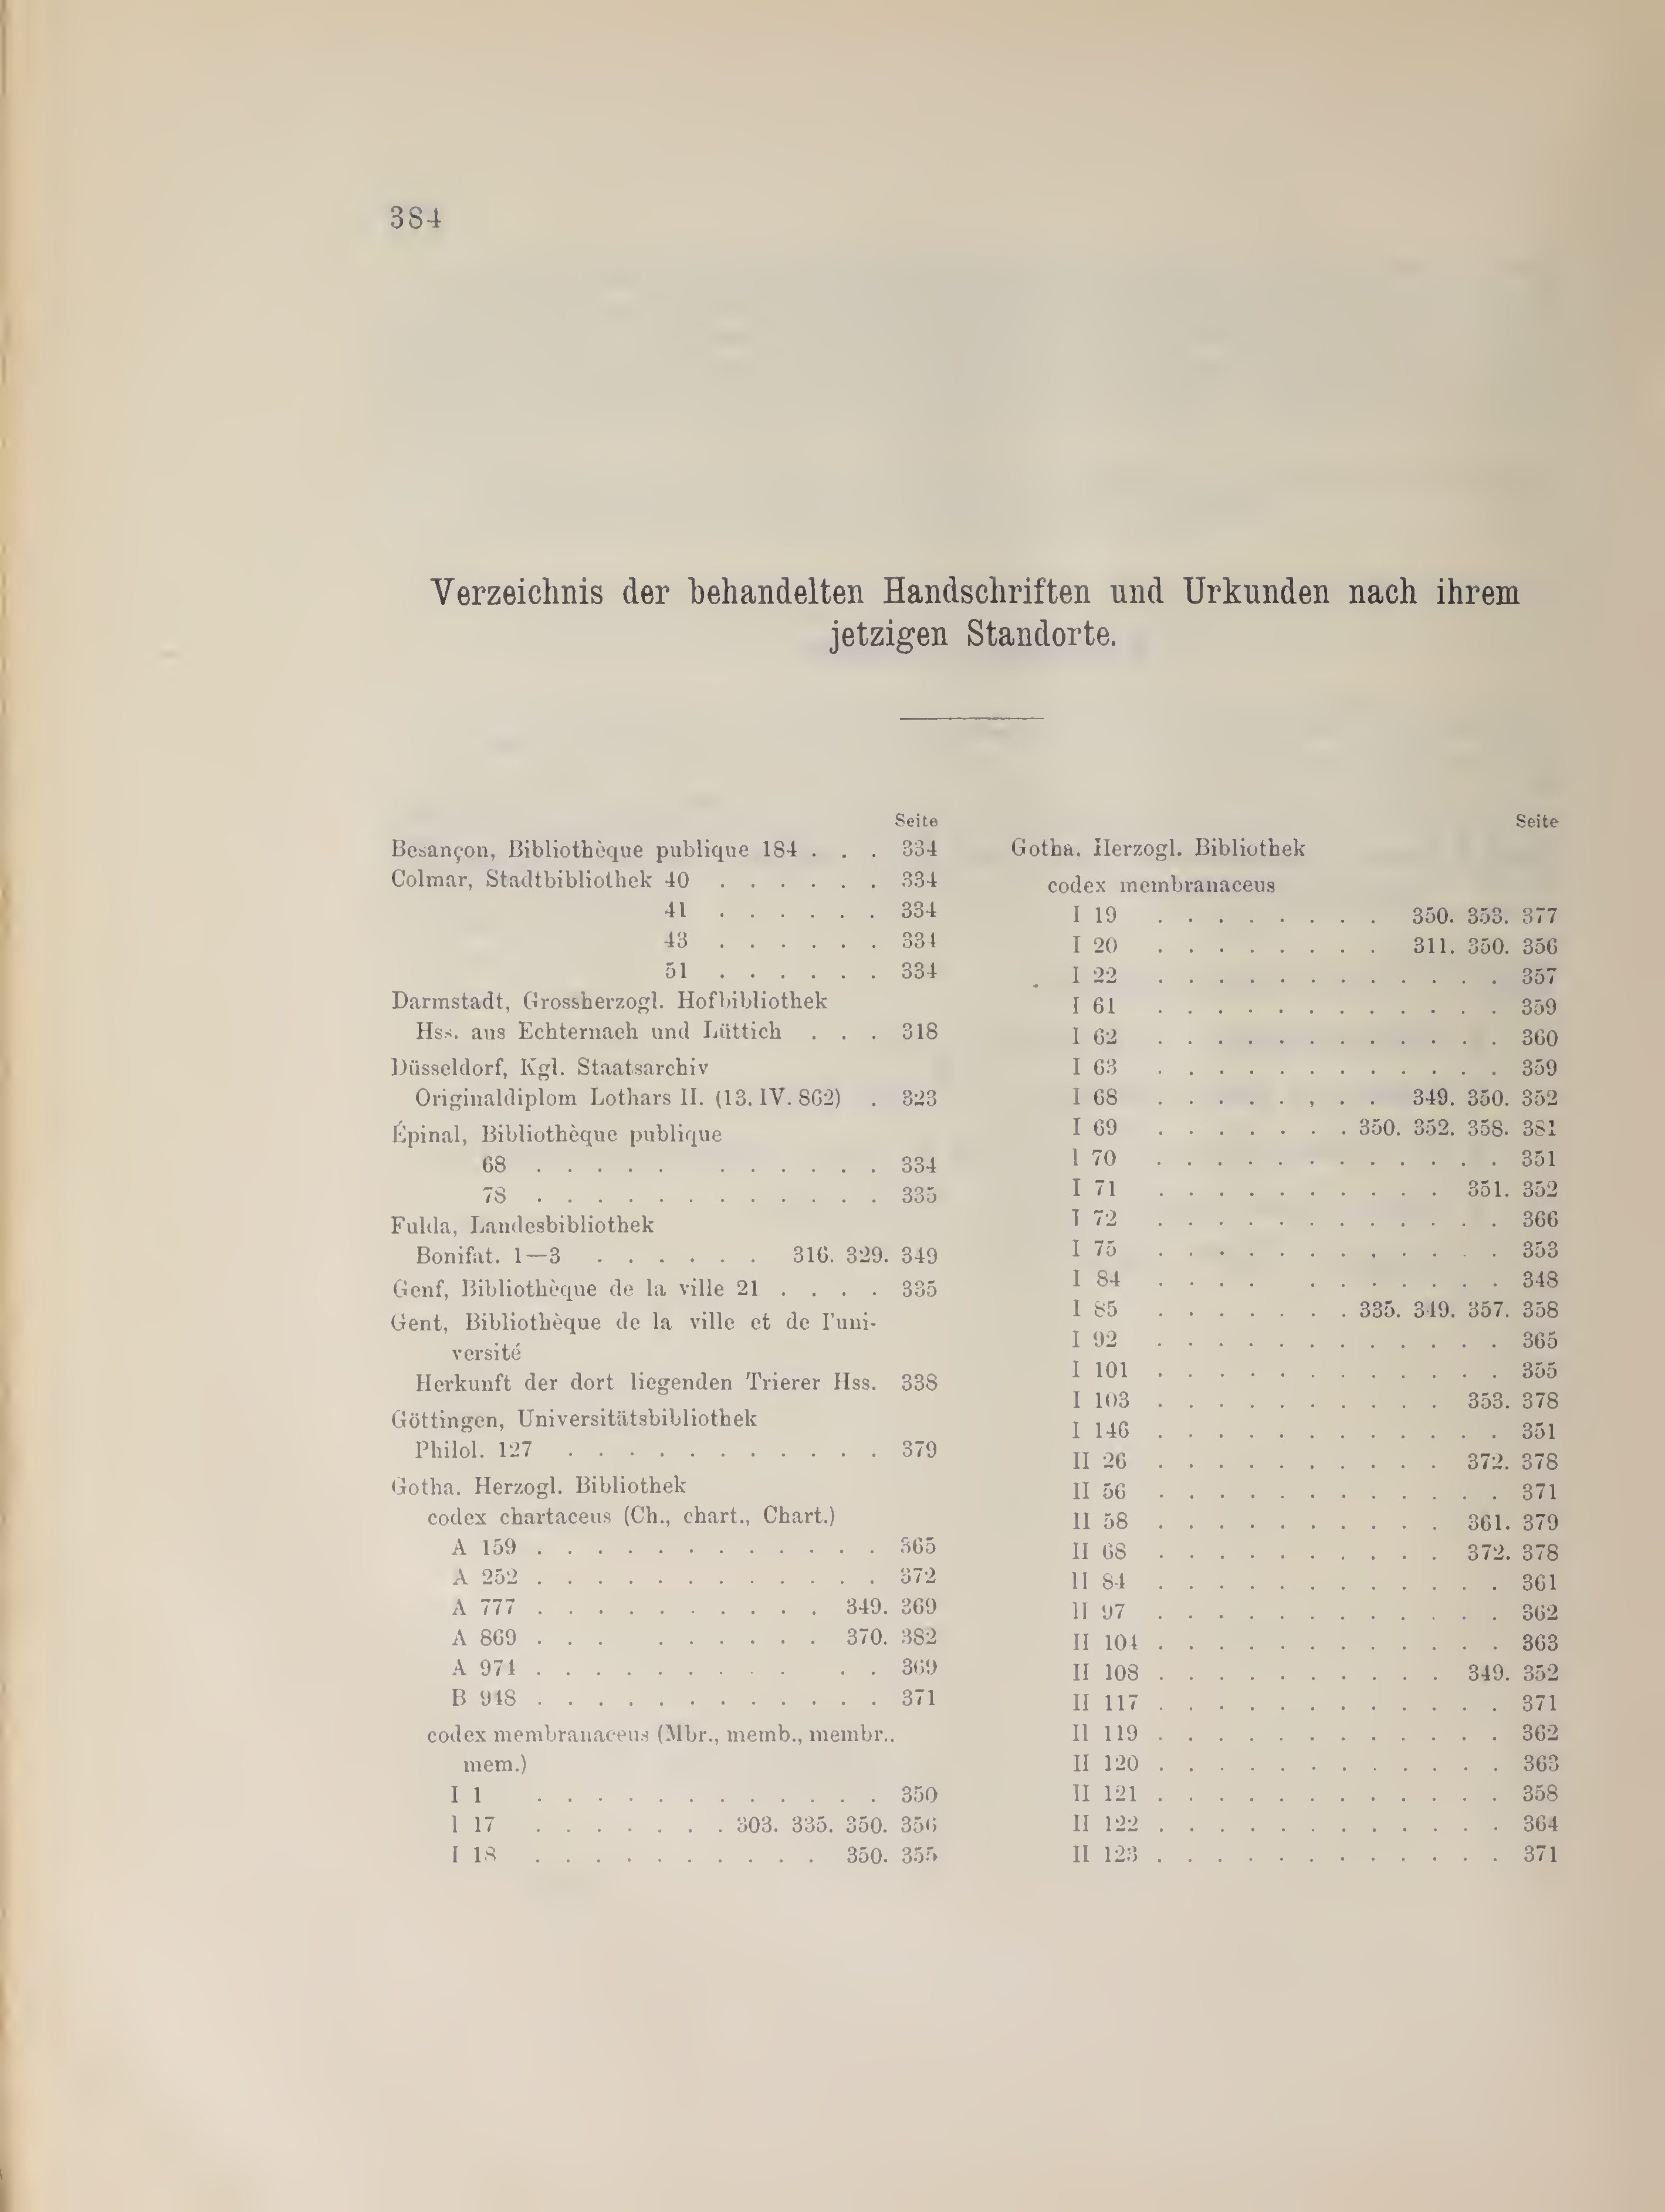 384
Verzeichnis der behandelten Handschriften und Urkunden nach ihrem
jetzigen Standorte.
Seite
Besançon, Bibliothèque publique 184 . . . 334
Colmar, Stadtbibliothek 40 . . . . . . 334
41 . . . . . . 334
43 . . . . . . 334
51 . . . . . . 334
Darmstadt, Grossherzogl. Hofbibliothek
Hss. aus Echternach und Lüttich . . . 318
Düsseldorf, Kgl. Staatsarchiv
Originaldiplom Lothars II. (13. IV. 862) . 323
Épinal, Bibliothèque publique
68 . . . . . . . . . . . 334
78 . . . . . . . . . . . . 335
Fulda, Landesbibliothek
Bonifat. 1—3 . . . . . . 316. 329. 349
Genf, Bibliothèque de la ville 21 . . . . 335
Gent, Bibliothèque de la ville et de l'uni-
versité
Herkunft der dort liegenden Trierer Hss. 338
Göttingen, Universitätsbibliothek
Philol. 127 . . . . . . . . . . . 379
Gotha, Herzogl. Bibliothek
codex chartaceus (Ch., chart., Chart.)
A 159 . . . . . . . . . . . . 365
A 252 . . . . . . . . . . . . 372
A 777 . . . . . . . . . . . 349. 369
A 869 . . . . . . . . . 370. 382
A 974 . . . . . . . . . . . 369
B 948 . . . . . . . . . . . . 371
codex membranaceus (Mbr., memb., membr.,
mem.)
I 1 . . . . . . . . . . . . 350
I 17 . . . . . . . 303. 335. 350. 356
I 18 . . . . . . . . . . 350. 355
Seite
Gotha, Herzogl. Bibliothek
codex membranaceus
I 19 . . . . . . . . 350. 353. 377
I 20 . . . . . . . . 311. 350. 356
I 22 . . . . . . . . . . . . 357
I 61 . . . . . . . . . . . . 359
I 62 . . . . . . . . . . . . 360
I 63 . . . . . . . . . . . . 359
I 68 . . . . . , . . 349. 350. 352
I 69 . . . . . . . 350. 352. 358. 381
I 70 . . . . . . . . . . . . 351
I 71 . . . . . . . . . . 351. 352
I 72 . . . . . . . . . . . . 366
I 75 . . . . . . . . . . . . 353
I 84 . . . . . . . . . . . 348
I 85 . . . . . . . 335. 349. 357. 358
I 92 . . . . . . . . . . . . 365
I 101 . . . . . . . . . . . . 355
I 103 . . . . . . . . . . 353. 378
I 146 . . . . . . . . . . . . 351
II 26 . . . . . . . . . . 372. 378
II 56 . . . . . . . . . . . . 371
II 58 . . . . . . . . . . 361. 379
II 68 . . . . . . . . . . 372. 378
II 84 . . . . . . . . . . . . 361
II 97 . . . . . . . . . . . . 362
II 104 . . . . . . . . . . . . 363
II 108 . . . . . . . . . . 349. 352
II 117 . . . . . . . . . . . . 371
II 119 . . . . . . . . . . . . 362
II 120 . . . . . . . . . . . . 363
II 121 . . . . . . . . . . . . 358
II 122 . . . . . . . . . . . . 364
II 123 . . . . . . . . . . . . 371